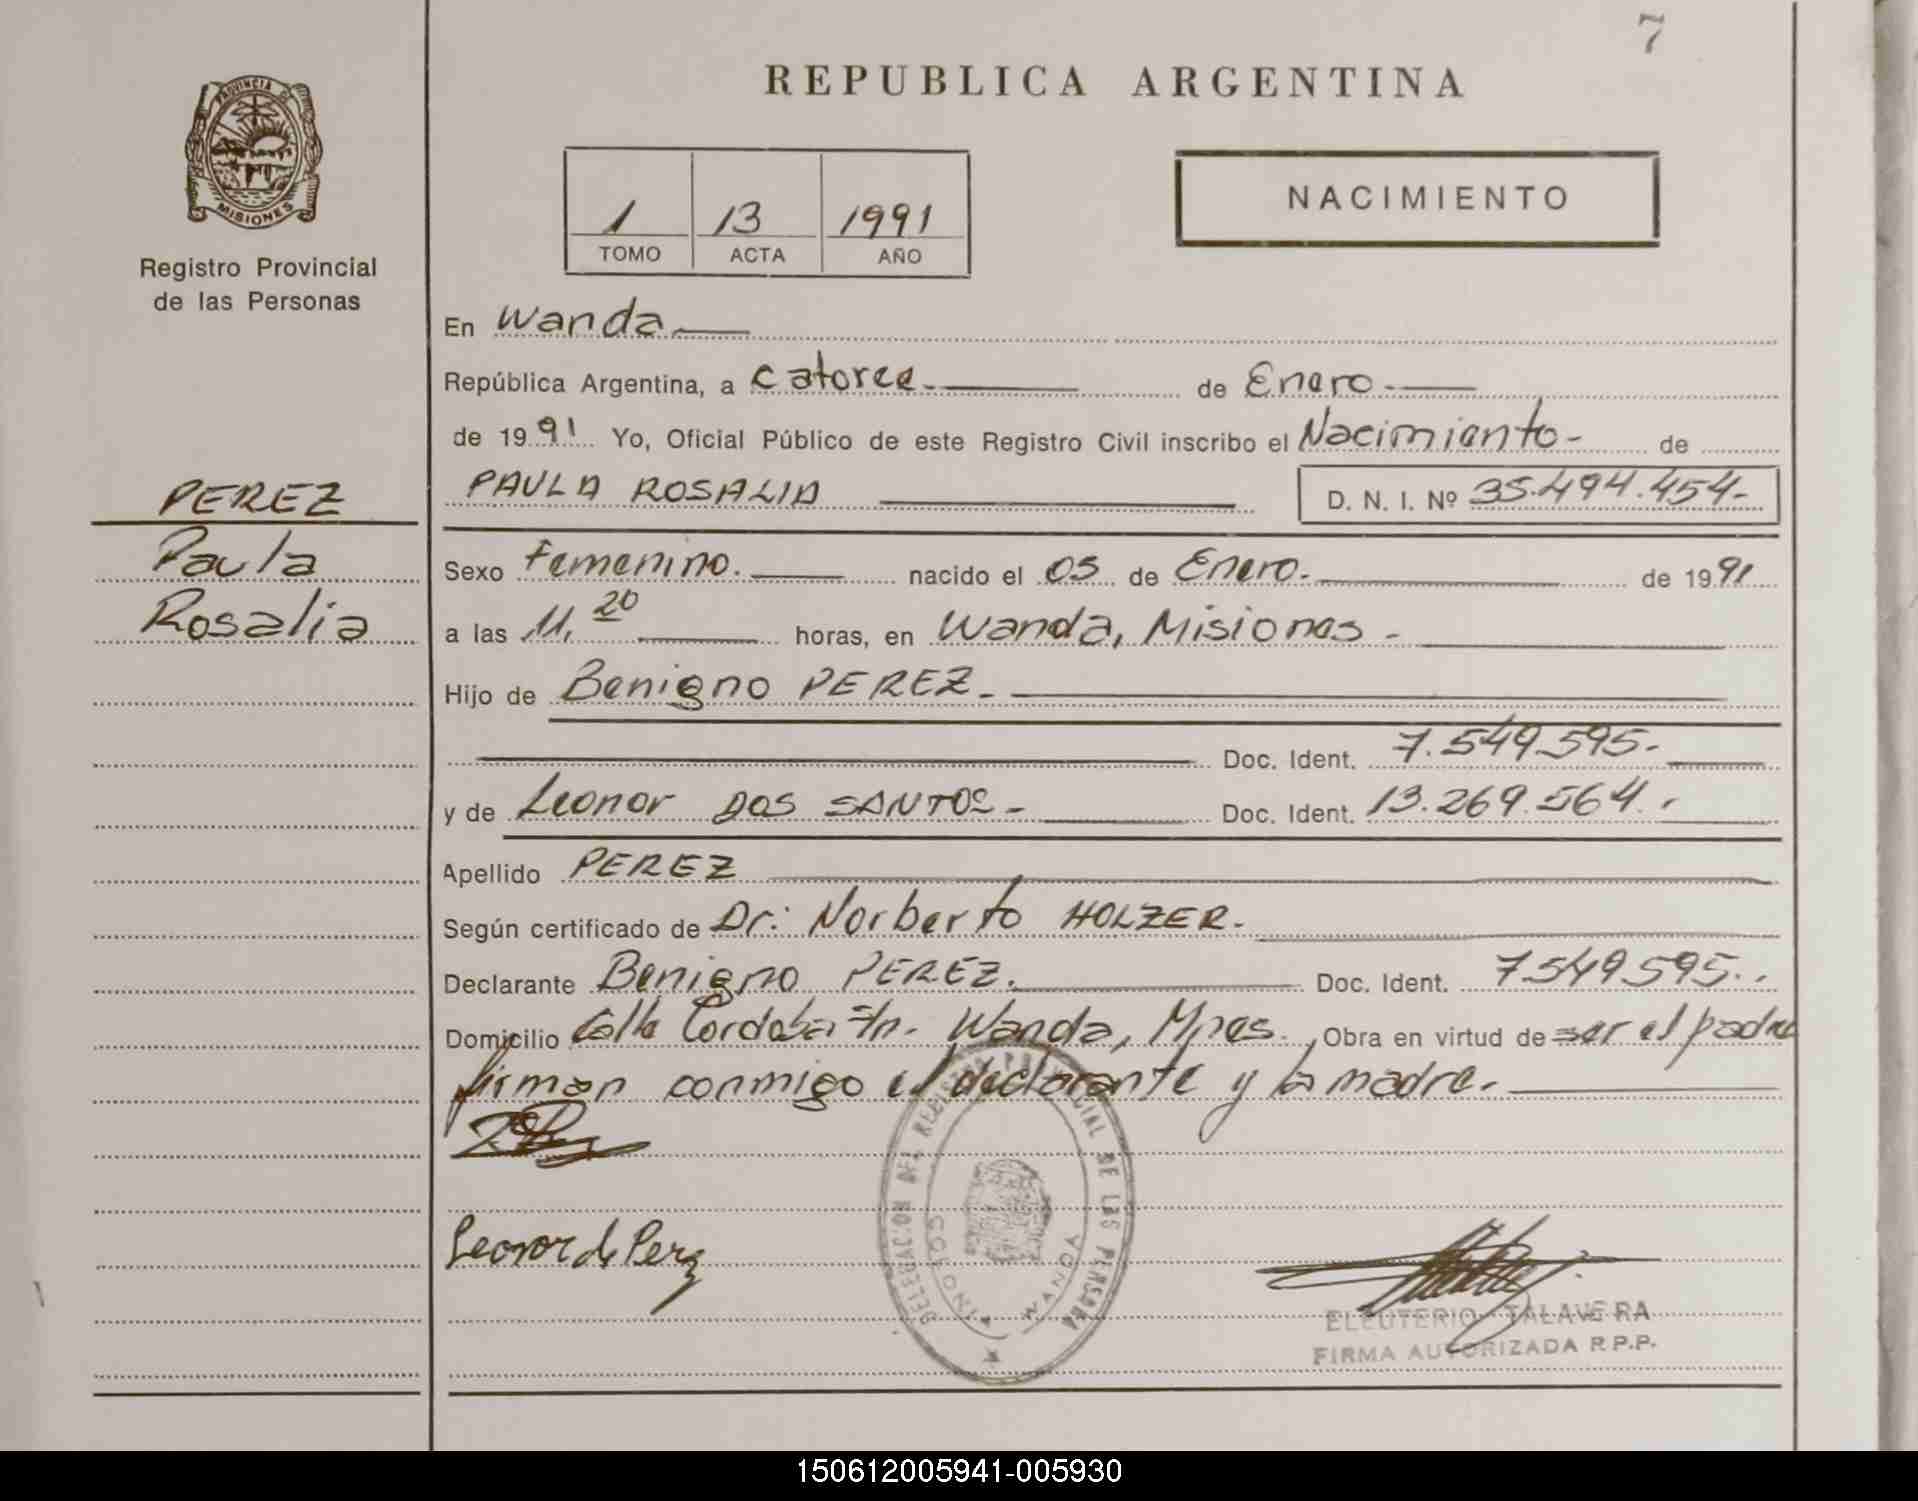 7
REPUBLICA ARGENTINA
PROVINCIA DE
MISIONES
Registro Provincial
de las Personas
1 13 1991
TOMO ACTA AÑO
NACIMIENTO
En Wanda
República Argentina, a catorce de Enero
de 1991 Yo, Oficial Público de este Registro Civil inscribo el Nacimiento de
PEREZ
PAULA ROSALIA D. N. I. Nº 35.494.454
Paula
Sexo Femenino. nacido el 05 de Enero. de 1991
Rosalia
a las 11,20 horas, en Wanda, Misiones
Hijo de Benigno PEREZ
Doc. Ident. 7.549.595
y de Leonor DOS SANTOS Doc. Ident. 13.269.564
Apellido PEREZ
Según certificado de Dr: Norberto HOLZER
Declarante Benigno PEREZ. Doc. Ident. 7549595
Domicilio Calle Cordoba s/n. Wanda, Mnes. Obra en virtud de ser el padre
firman conmigo el declarante y la madre.
Leonor de Perez
DELEGACION DEL REGISTRO PROVINCIAL DE LAS PERSONAS
MISIONES WANDA
ELEUTERIO TALAVERA
FIRMA AUTORIZADA R.P.P.
150612005941-005930